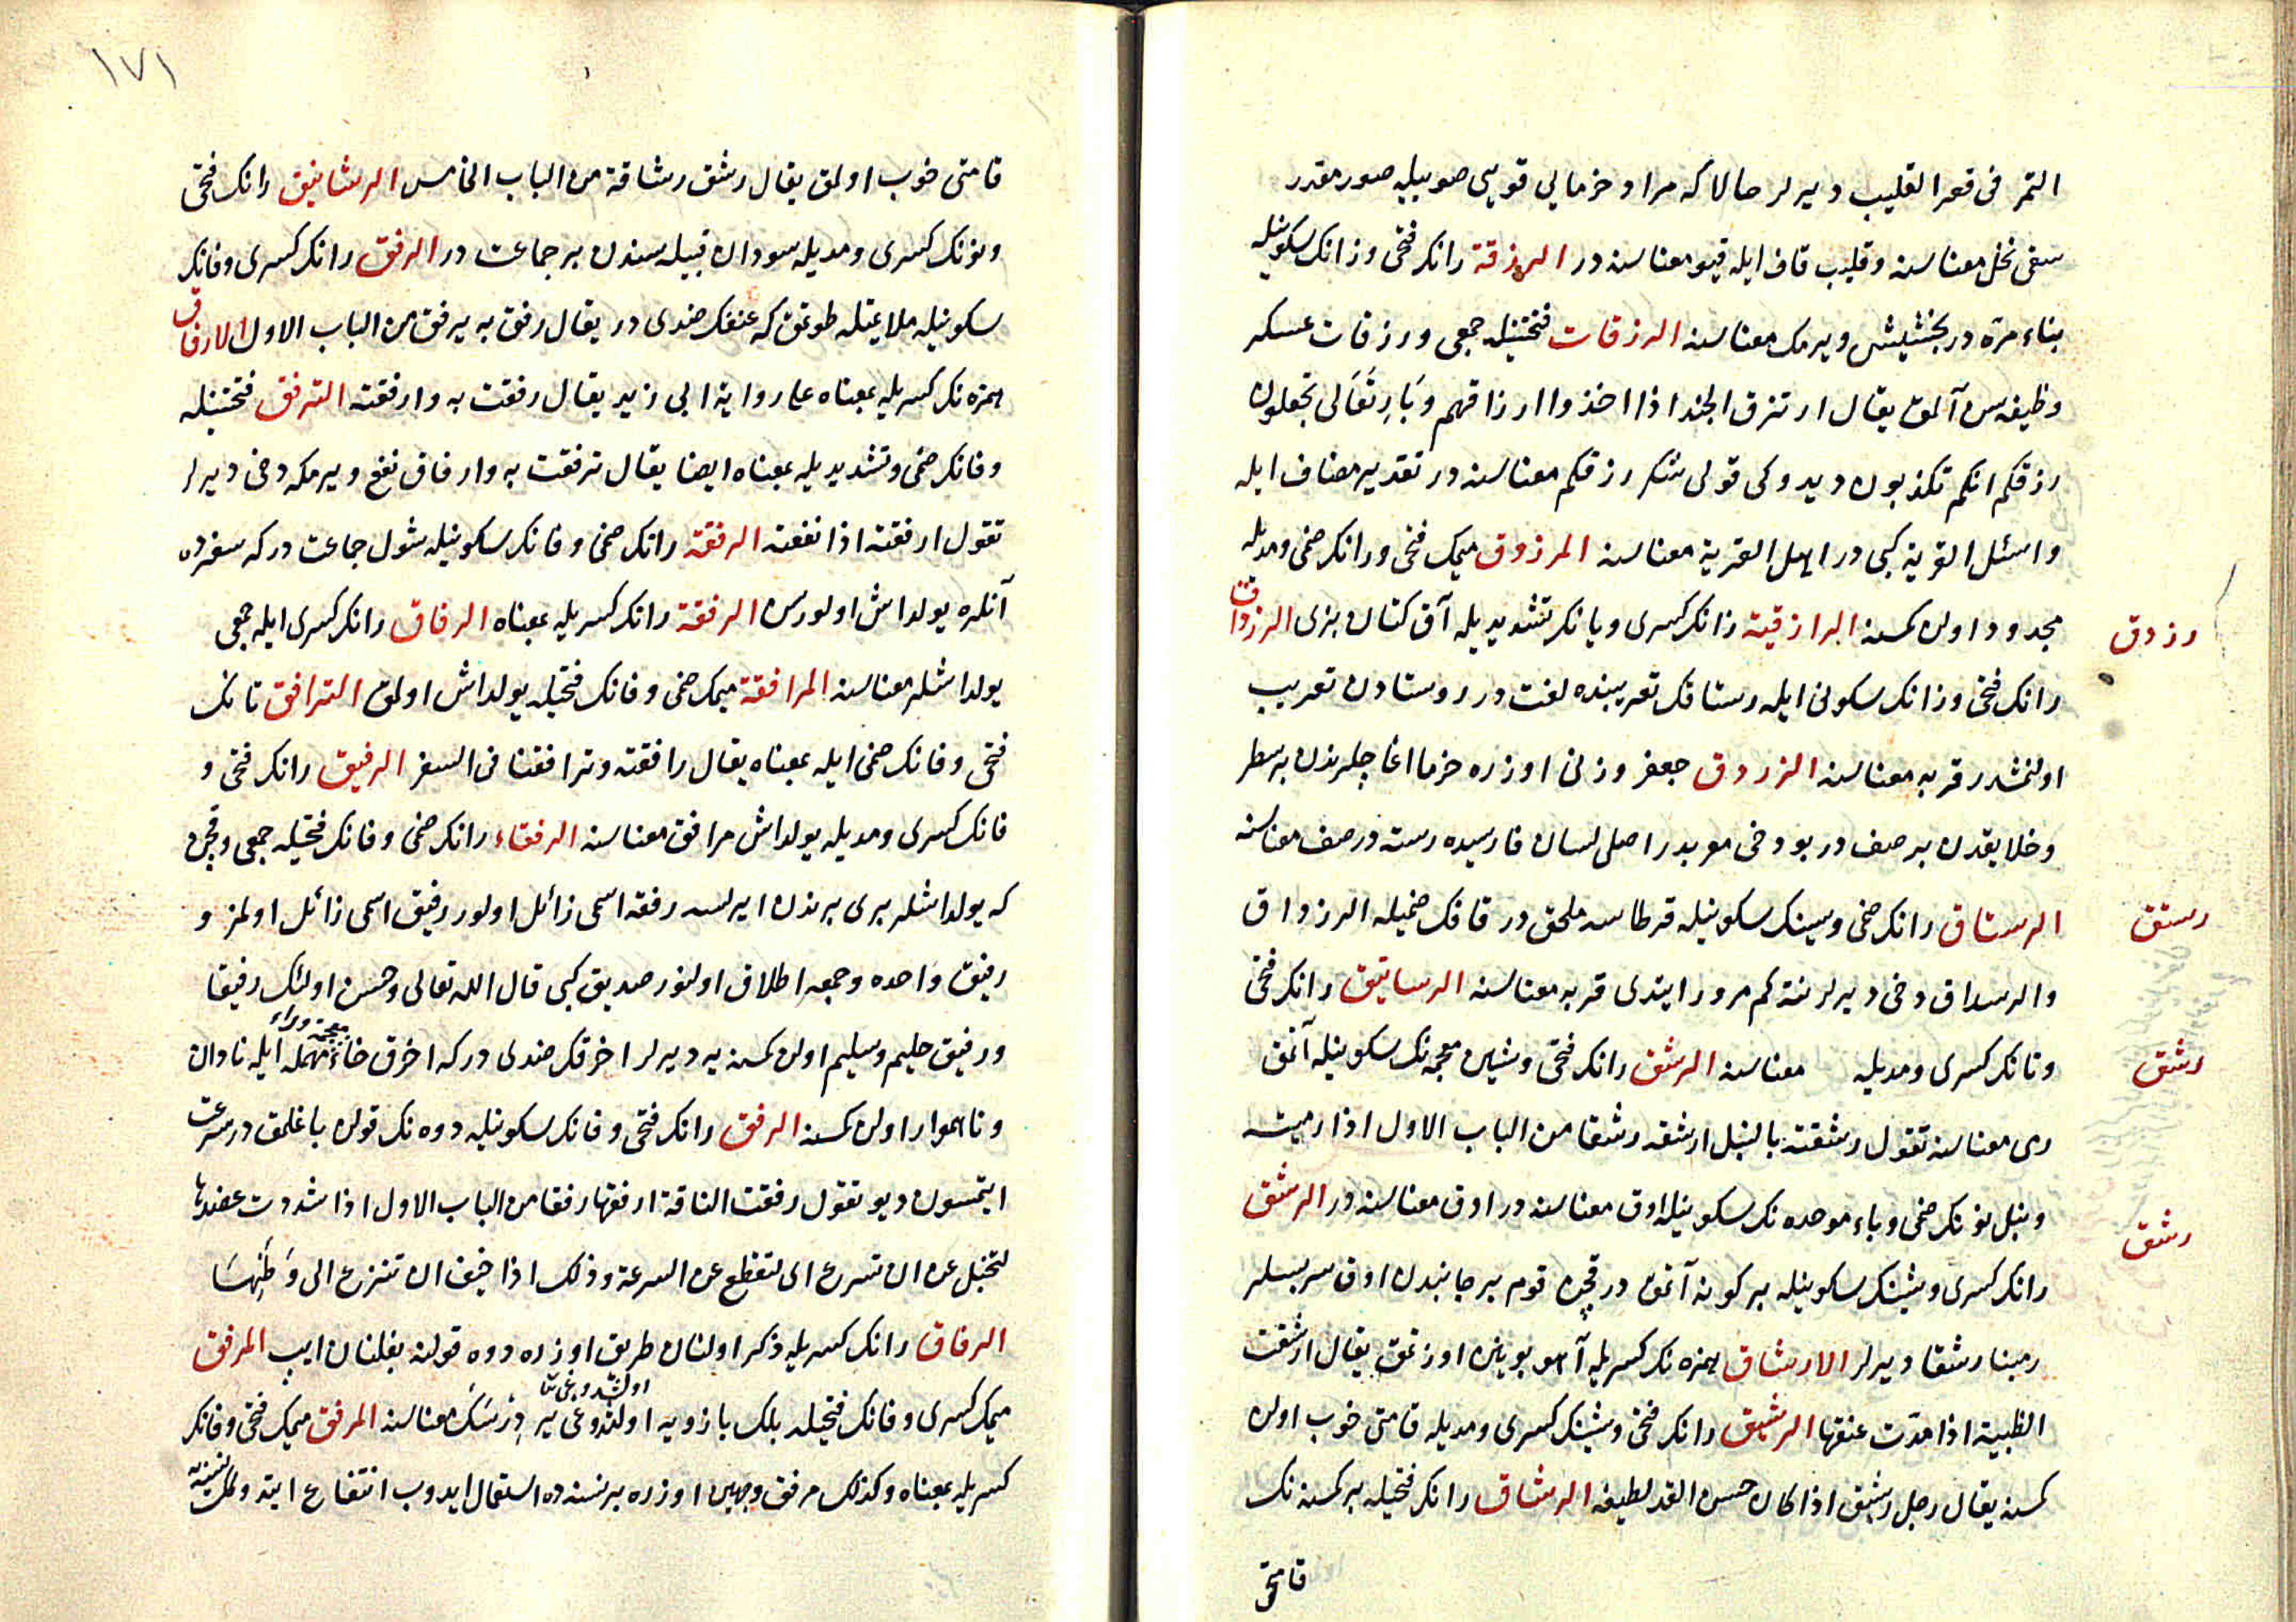 التمر فى قعر القليب ديرلر حالا كه مراد خرمايى قويى صويله صورمقدر
سقى نخل معناسنه وقليب قاف ايله قيو معناسنه در الرزقة رانك فتحى وزانك سكونيله
بناء مرّه در بخشيش ويرمك معناسنه الرزقات فتحتينله جمعى ورزقات عسكر
وظيفه سن آلمق يقال ارتزق الجند اذا اخذوا ارزاقهم وبارى تعالى تجعلون
رزقكم انكم تكذبون ديدوكى قولى شكر رزقكم معناسنه در تقدير مضاف ايله
واسئل القرية كبى در اهل القرية معناسنه المرزوق ميمك فتحى ورانك ضمى ومديله
مجدود اولن كمسنه الرازقية زانك كسرى ويانك تشديديله آق كتان بزى الرزداق
رزدق
رانك فتحى وزانك سكونى ايله رستاقك تعريبنده لغت در روستادن تعريب
اولنمشدر قريه معناسنه الزردق جعفر وزنى اوزره خرما اغاجلرندن بر سطر
وخلايقدن بر صف در بو دخى معربدر اصلى لسان فارسيده رسته در صف معناسنه
الرستاق رانك ضمى وسينك سكونيله قرطاسه ملحق در قافك ضميله الرزداق
رستق
والرسداق دخى ديرلر نته كم مرور ايتدى قريه معناسنه الرساتيق رانك فتحى
وتانك كسرى ومديله معناسنه الرشق رانك فتحى وشين معجمه نك سكونيله آتمق
رشق
رمى معناسنه تقول رشقته بالنبل ارشقه رشقا من الباب الاول اذا رميته
ونبل نونك ضمى وباء موحده نك سكونيله اوق معناسنه در اوق معناسنه در الرشق
رشق
رانك كسرى وشينك سكونيله بر كونه آتمق در قچن قوم بر جانبدن اوق سربسلر
رمينا رشقا ديرلر الارشاق همزه نك كسريله آهو بوينن اوزتمق يقال ارشقت
الظبية اذا مدّت عنقها الرشيق رانك فتحى وشينك كسرى ومديله قامتى خوب اولن
كمسنه يقال رجل رشيق اذا كان حسن القد لطيفه الرشاق رانك فتحيله بر كمسنه نك
قامتى
١٧١
قامتى خوب اولمق يقال رشق رشاقة من الباب الخامس الرشانيق رانك فتحى
ونونك كسرى ومديله سودان قبيله سندن بر جماعت در الرفق رانك كسرى وفانك
سكونيله ملايمتله طوتمق كه عنفك ضدى در يقال رفق به يرفق من الباب الاول الارفاق
همزه نك كسريله بمعناه على رواية ابى زيد يقال رفقت به وارفقته الترفق فتحتينله
وفانك ضمى وتشديديله بمعناه ايضا يقال ترفقت به وارفاق نفع ويرمكه دخى ديرلر
تقول ارفقته اذا نفعته الرفقة رانك ضمى وفانك سكونيله شول جماعت در كه سفرده
آنلره يولداش اولورسن الرفقة رانك كسريله بمعناه الرفاق رانك كسرى ايله جمعى
يولداشلر معناسنه المرافقة ميمك ضمى وفانك فتحيله يولداش اولمق الترافق تانك
فتحى وفانك ضمى ايله بمعناه يقال رافقته وترافقنا فى السفر الرفيق رانك فتحى و
فانك كسرى ومديله يولداش مرافق معناسنه الرفقاء رانك ضمى وفانك فتحيله جمعى وقچن
كه يولداشلر برى برندن ايرلسه رفقه اسمى زائل اولور رفيق اسمى زائل اولمز و
رفيق واحده وجمعه اطلاق اولنور صديق كبى قال الله تعالى وحسن اولئك رفيقا
ورفيق حليم وسليم اولن كمسنه يه ديرلر اخرقك ضدى در كه اخرق خاء معجمه وراء مهمله ايله نادان
وناهموار اولن كمسنه الرفق رانك فتحى وفانك سكونيله دوه نك قولن باغلمق در سرعت
ايتمسون ديو تقول رفقت الناقة ارفقها رفقا من الباب الاول اذا شددت عضدها
لتخبل عن ان تسرع اى لتقطع عن السرعة وذلك اذا خيف ان تنزع الى وطنها
الرفاق رانك كسريله ذكر اولنان طريق اوزره دوه قولنه بغلنان ايپ المرفق
ميمك كسرى وفانك فتحيله بلك بازويه اولشدوغى ير درسك معناسنه المرفق ميمك فتحى وفانك
كسريله بمعناه وكذلك مرفق وجهين اوزره بر نسنه ده استعمال ايدوب انتفاع ايتدوكك